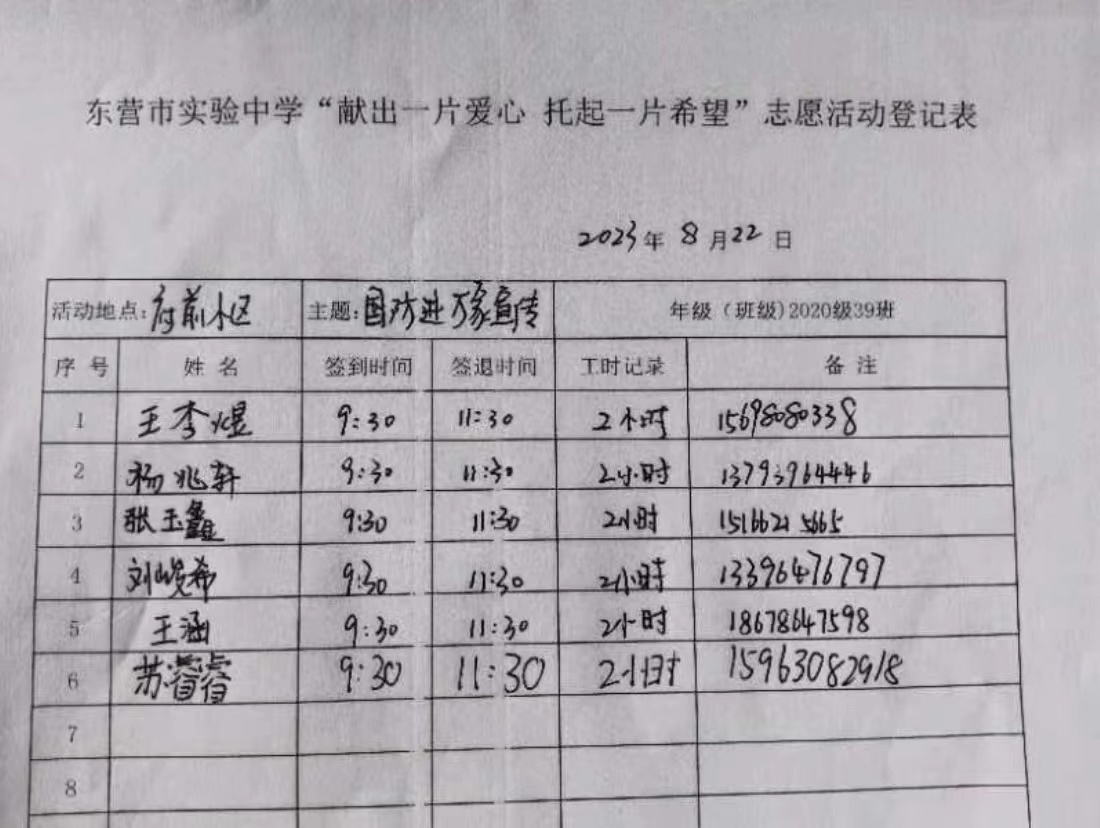 东营市实验中学“献出一片爱心 托起一片希望”志愿活动登记表
2023年 8月22日
活动地点:府前小区 主题:国防进万家宣传 年级（班级)2020级39班
序号 姓名 签到时间 签退时间 工时记录 备注
1 王李煜 9:30 11:30 2小时 15698080338
2 杨兆轩 9:30 11:30 2小时 13793964446
3 张玉鑫 9:30 11:30 2小时 15166215665
4 刘峻希 9:30 11:30 2小时 13396476797
5 王涵 9:30 11:30 2小时 18678647598
6 苏睿睿 9:30 11:30 2小时 15963082918
7
8